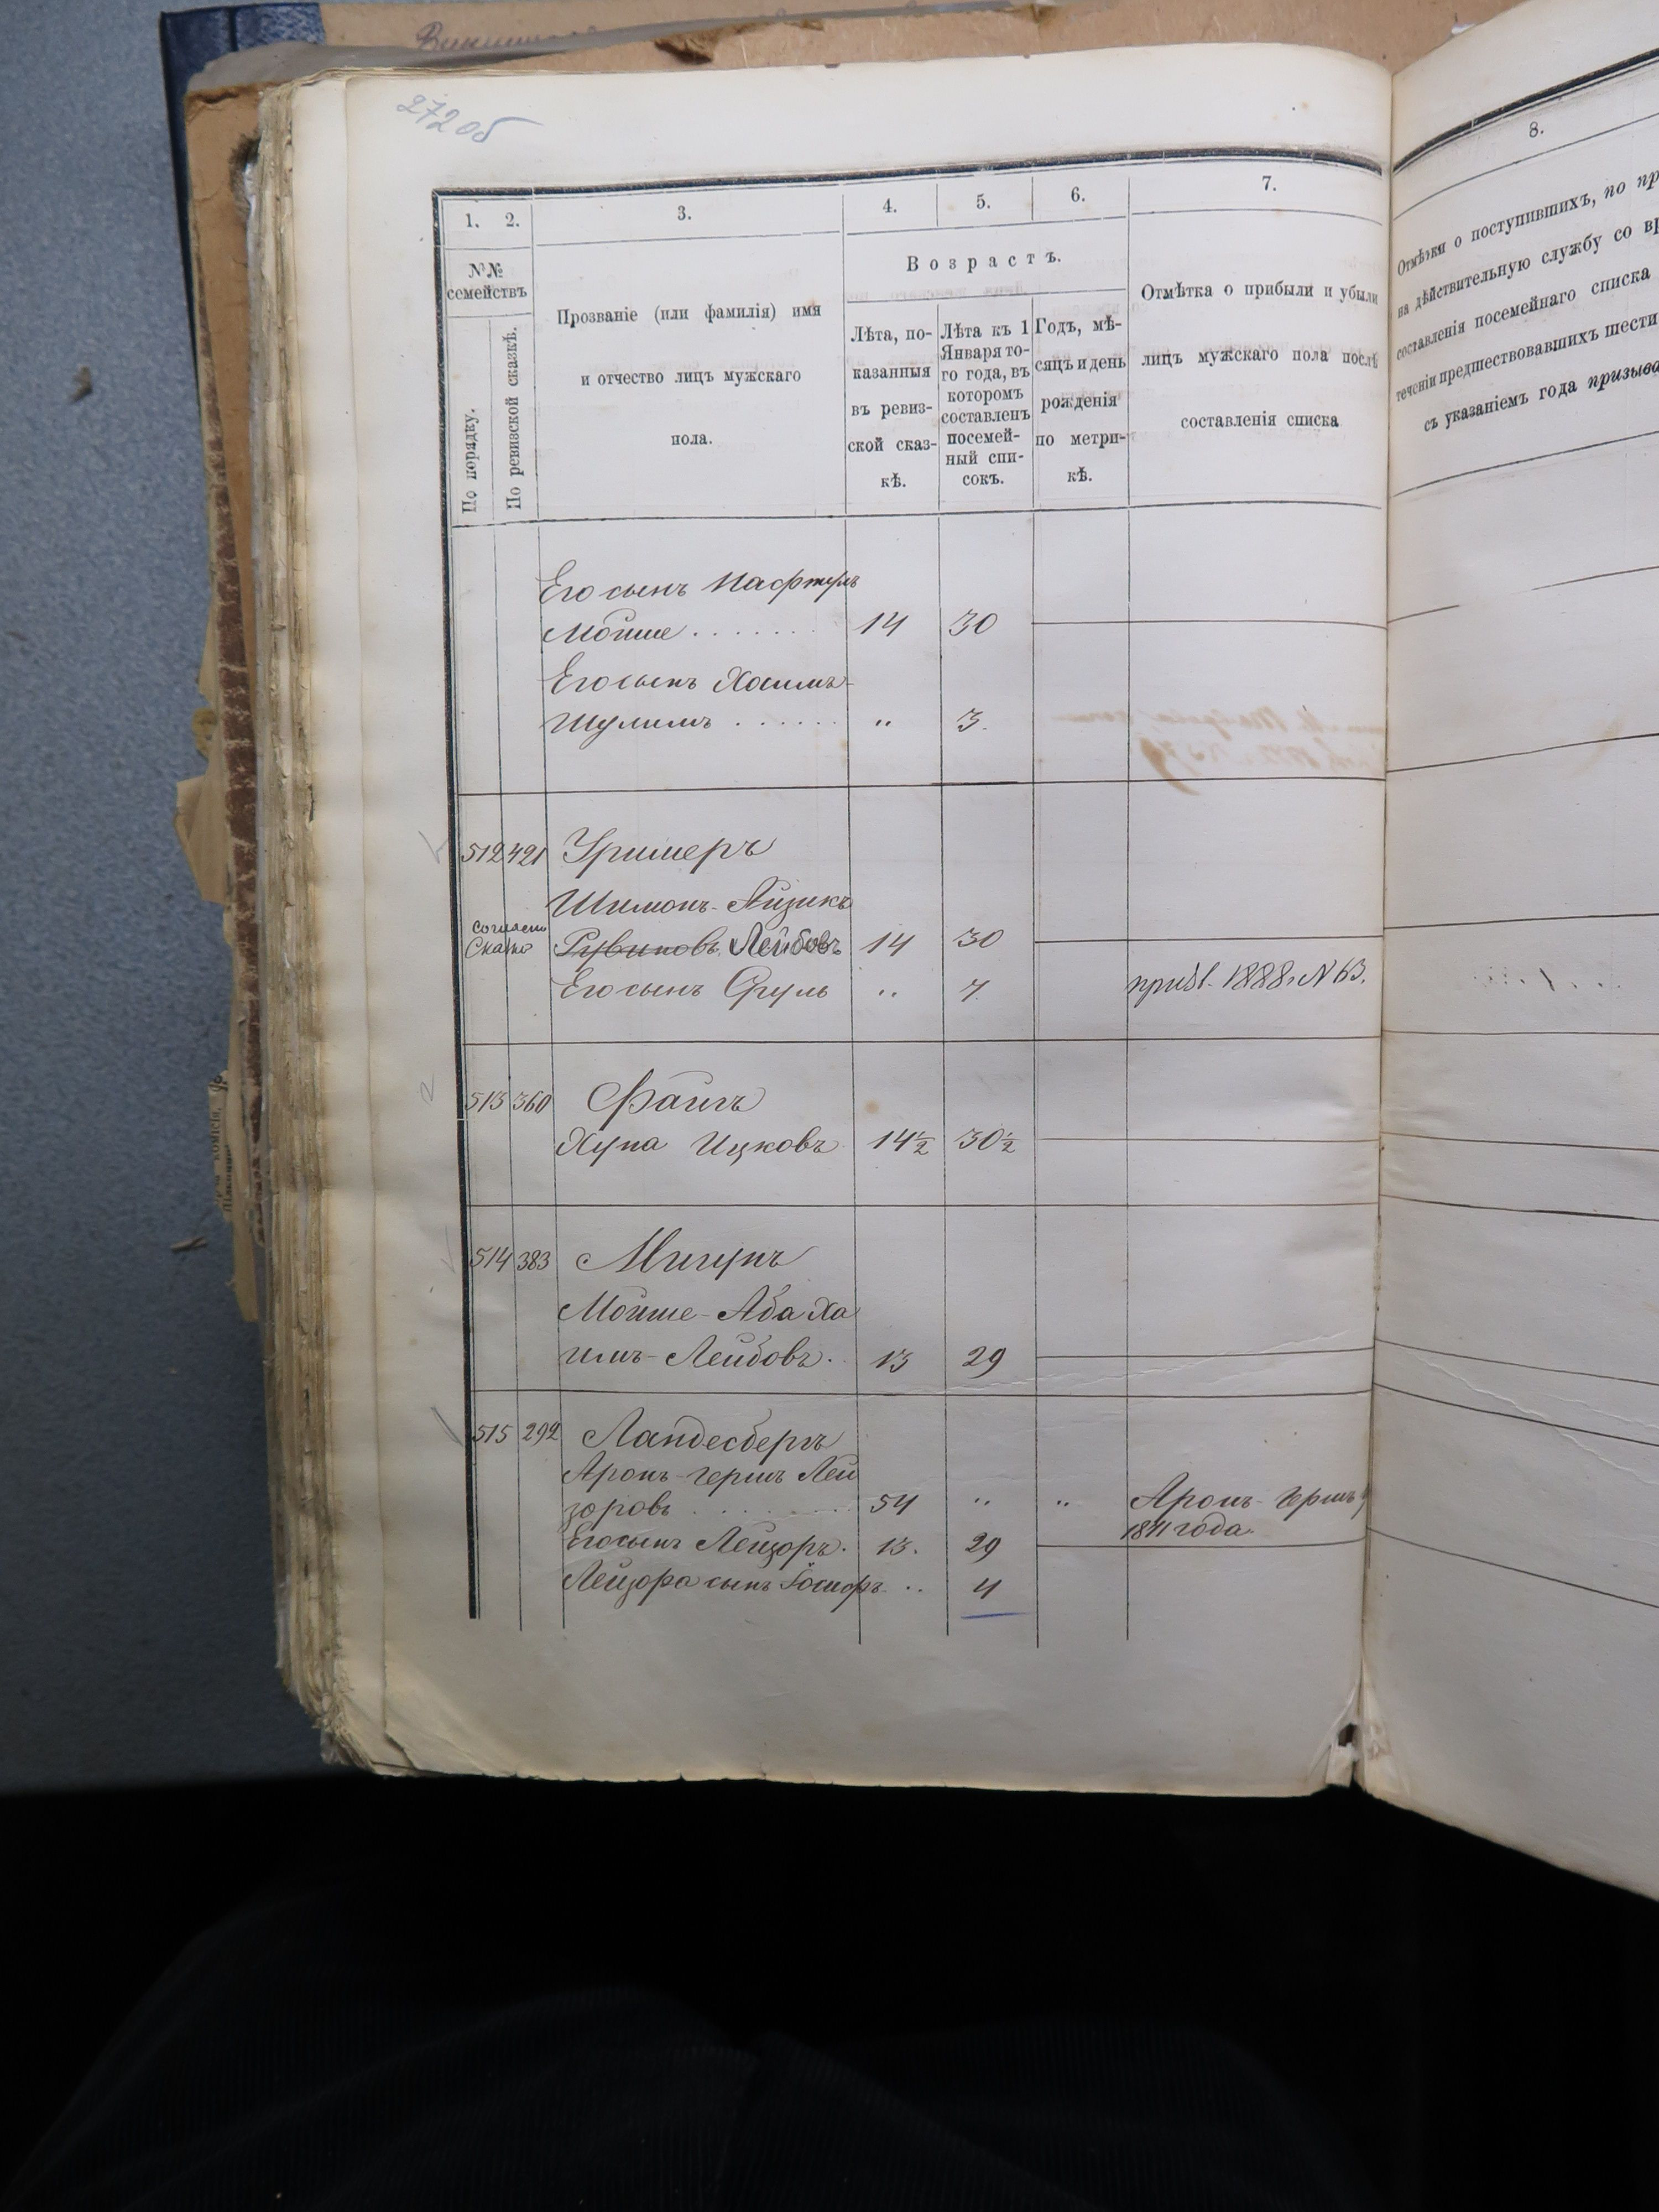 272 об
1. 2. 3. 4. 5. 6. 7.
№№
семействъ
По порядку.
По ревизской сказкѣ.
Прозваніе (или фамилія) имя
и отчество лицъ мужскаго
пола.
Возрастъ.
Лѣта, по-
казанныя
въ ревиз-
ской сказ-
кѣ.
Лѣта къ 1
Января то-
го года, въ
которомъ
составленъ
посемей-
ный спи-
сокъ.
Годъ, мѣ-
сяцъ и день
рожденія
по метри-
кѣ.
Отмѣтка о прибыли и убыли
лицъ мужскаго пола послѣ
составленія списка
Его сынъ Нафтуль
Мойше . . . . . . . 14 30
Его сынъ Хаимъ-
Шулимъ . . . . . . " 3.
512 421
Шимонъ-Айзикъ
согласно
Сказке
Рувиновъ Лейбовъ 14 30
Его сынъ Сруль " 7. призв. 1888 г. N 63.
513 360 Файгъ
Хуна Ицковъ 14½ 30½
514 383 Мигунъ
Мойше-Аба Ха
имъ-Лейбовъ. 13 29
515 292 Ландесбергъ
Аронъ-Гершъ Лей
зоровъ . . . . . . . 54 " " Аронъ-Гершъ
1871 года.
Его сынъ Лейзоръ. 13. 29
Лейзора сынъ Іосифъ " 4
8.
Отмѣтки о поступившихъ, по
на дѣйствительную службу со
составленія посемейнаго списка
теченіи предшествовавшихъ шести
съ указаніемъ года